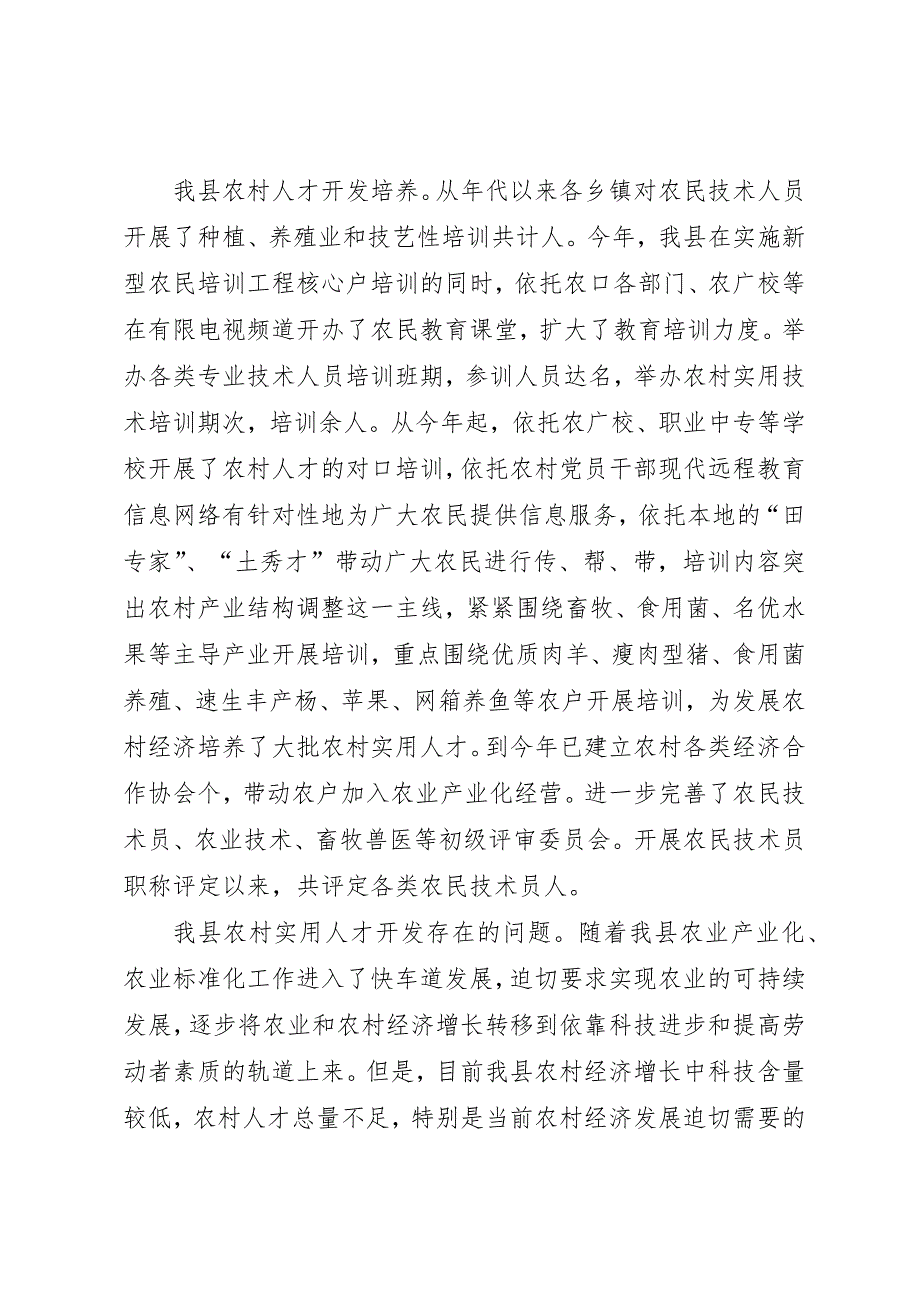 我县农村人才开发培养。从年代以来各乡镇对农民技术人员
开展了种植、养殖业和技艺性培训共计人。今年，我县在实施新
型农民培训工程核心户培训的同时，依托农口各部门、农广校等
在有限电视频道开办了农民教育课堂，扩大了教育培训力度。举
办各类专业技术人员培训班期，参训人员达名，举办农村实用技
术培训期次，培训余人。从今年起，依托农广校、职业中专等学
校开展了农村人才的对口培训，依托农村党员干部现代远程教育
信息网络有针对性地为广大农民提供信息服务，依托本地的“田
专家”、“土秀才”带动广大农民进行传、帮、带，培训内容突
出农村产业结构调整这一主线，紧紧围绕畜牧、食用菌、名优水
果等主导产业开展培训，重点围绕优质肉羊、瘦肉型猪、食用菌
养殖、速生丰产杨、苹果、网箱养鱼等农户开展培训，为发展农
村经济培养了大批农村实用人才。到今年已建立农村各类经济合
作协会个，带动农户加入农业产业化经营。进一步完善了农民技
术员、农业技术、畜牧兽医等初级评审委员会。开展农民技术员
职称评定以来，共评定各类农民技术员人。
我县农村实用人才开发存在的问题。随着我县农业产业化、
农业标准化工作进入了快车道发展，迫切要求实现农业的可持续
发展，逐步将农业和农村经济增长转移到依靠科技进步和提高劳
动者素质的轨道上来。但是，目前我县农村经济增长中科技含量
较低，农村人才总量不足，特别是当前农村经济发展迫切需要的